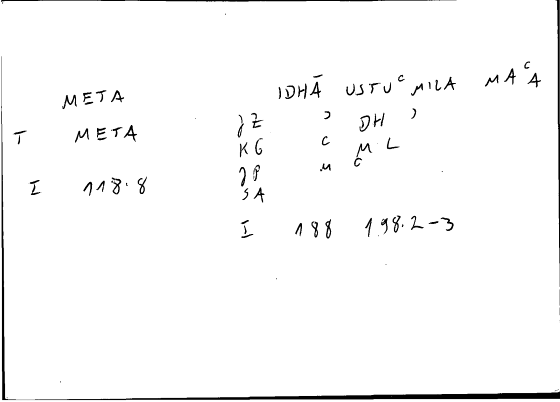 META
T META
I 118.8
IDHĀ USTUᶜMILA MAᶜA
JZ ʾ DH ʾ
KG ᶜ M L
JP M ᶜ
SA
I 188 198.2-3